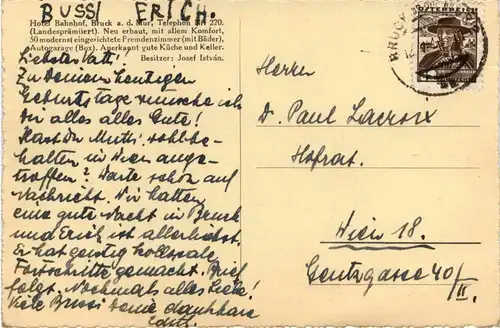 BUSSI ERICH.
Hotel Bahnhof, Bruck a. d. Mur, Telephon Nr 220.
(Landesprämiiert). Neu erbaut, mit allem Komfort,
50 modernst eingerichtete Fremdenzimmer (mit Bilder),
Autogarage (Box). Anerkannt gute Küche und Keller.
Besitzer: Josef István.
Liebster Vatti!
Zu Deinem heutigen
Geburtstage wünsche ich
Dir alles alles Gute!
Hast Du Mutti wohlbe-
halten in Wien ange-
troffen? Warte schon auf
Nachricht. Wir hatten
eine gute Nacht in Bruck
und Erich ist allerliebst.
Er hat geistig kollossale
Fortschritte gemacht. Brief
folgt. Nochmals alles Liebe!
Viele Bussi Deine dankbare
ÖSTERREICH
BRUCK
Herrn
D. Paul Lacroix
Hofrat.
Wien 18.
Gentzgasse 40/II.